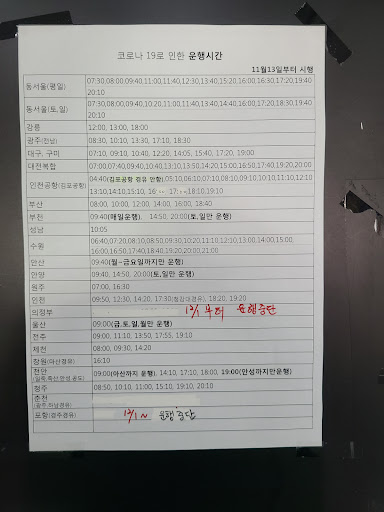 코로나 19로 인한 운행시간
11월13일부터 시행
동서울(평일) 07:30,08:00,09:40,11:00,11:40,12:30,13:40,15:20,16:00,16:30,17:20,19:40
20:10
동서울(토,일) 07:30,08:00,09:40,10:20,11:00,11:40,13:40,14:40,16:00,17:20,18:30,19:40
20:10
강릉 12:00, 13:00, 18:00
광주(전남) 08:30, 10:10, 13:30, 17:10, 18:30
대구, 구미 07:10, 09:10, 10:40, 12:20, 14:05, 15:40, 17:20, 19:00
대전복합 07:00,07:40,09:00,09:40,10:40,11:40,13:10,13:50,14:20,15:00,16:50,17:40,19:20,20:00
인천공항(김포공항) 04:40(김포공항 경유 안함),05:10,06:10,07:10,08:10,09:10,10:10,11:10,12:10
13:10,14:10,15:10, 16 17 18:10,19:10
부산 08:00, 10:00, 12:00, 14:00, 16:00, 18:40
부천 09:40(매일운행), 14:50, 20:00(토,일만 운행)
성남 10:05
수원 06:40,07:20,08:10,08:50,09:30,10:20,11:10,12:10,13:00,14:00,15:00,
16:00,16:50,17:40,18:40,19:20,20:20,21:00
안산 09:40(월~금요일까지만 운행)
안양 09:40, 14:50, 20:00(토,일만 운행)
원주 07:00, 16:30
인천 09:50, 12:30, 14:20, 17:30 18:20, 19:20
의정부 12/1부터 운행중단
울산 09:00(금,토,일,월만 운행)
전주 09:00, 11:10, 13:50, 17:55, 19:10
제천 08:00, 09:30, 14:20
창원(마산경유) 16:10
천안 09:00(아산까지 운행), 14:10, 17:10, 18:00, 19:00(안성까지만운행)
청주 08:50, 10:10, 11:00, 15:10, 19:10, 20:10
춘천
포항(경주경유) 12/1~ 운행중단